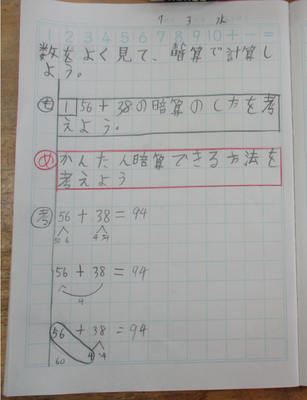 7 3 水
1 2 3 4 5 6 7 8 9 10 + - =
数をよく見て、暗算で計算し
よう。
も 1 56+38の暗算のしかたを考
えよう。
め かんたん人暗算できる方法を
考えよう
考 56 + 38 = 94
50 6 4 34
56 + 38 = 94
4
56 + 38 = 94
60 4 34